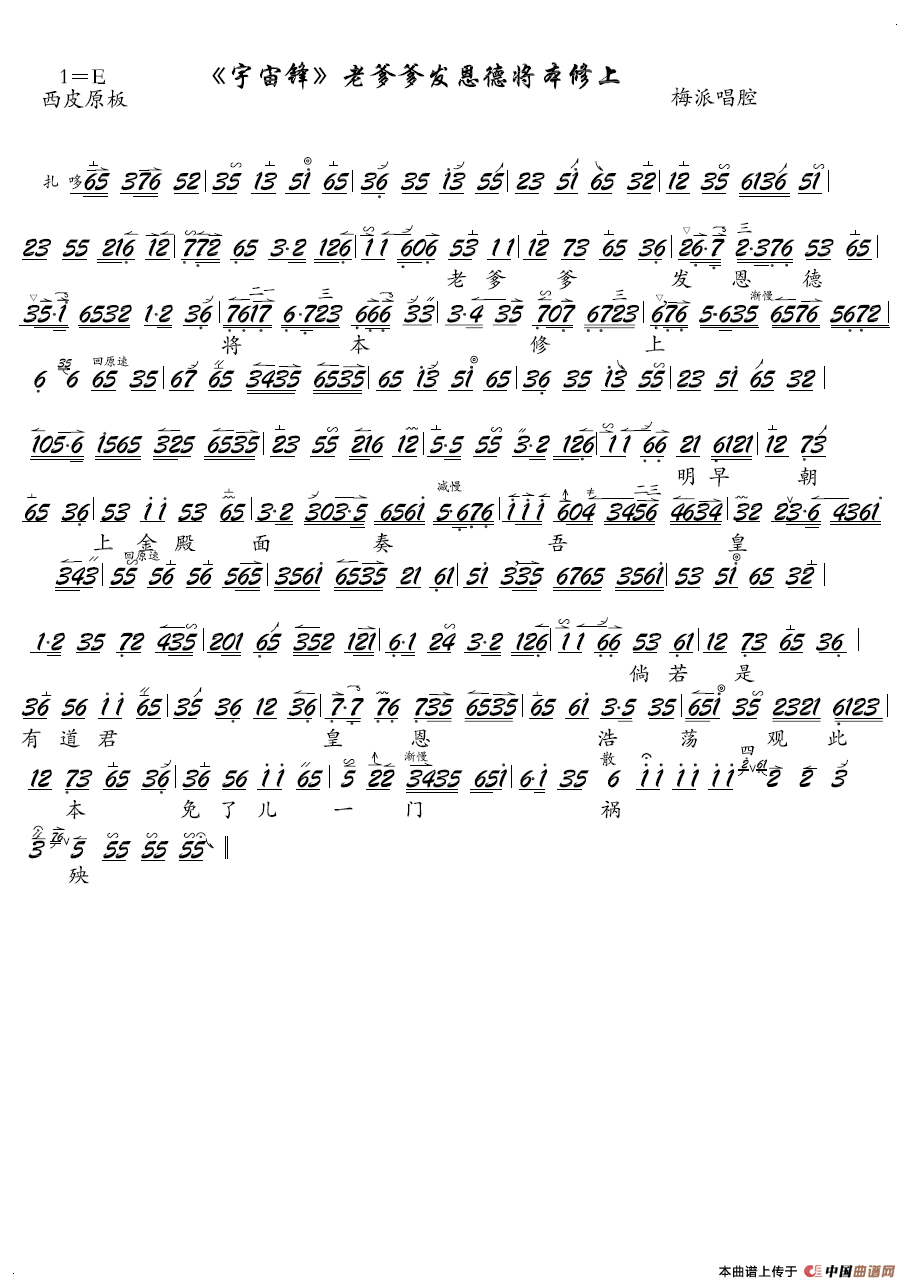 《宇宙锋》老爹爹发恩德将本修上
1=E
西皮原板
梅派唱腔
扎 哆 65 376 52 | 35 13 51 65 | 36 35 13 55 | 23 51 65 32 | 12 35 6136 51 |
23 55 216 12 | 772 65 3·2 126 | 11 606 53 11 | 12 73 65 36 | 26·7 2·376 53 65 |
老 爹 爹 发 恩 德
35·1 6532 1·2 36 | 7617 6·723 666 33 | 3·4 35 707 6723 | 676 5·635 6576 5672 |
渐慢
将 本 修 上
6 35 6 65 35 | 67 65 3435 6535 | 65 13 51 65 | 36 35 13 55 | 23 51 65 32 |
回原速
105·6 1565 325 6535 | 23 55 216 12 | 5·5 55 3·2 126 | 11 66 21 6121 | 12 73
明 早 朝
65 36 | 53 11 53 65 | 3·2 303·5 6561 5·676 | 111 604 3456 4634 | 32 23·6 4361
减慢
上 金 殿 面 奏 吾 皇
343 | 55 56 56 565 | 3561 6535 21 61 | 51 335 6765 3561 | 53 51 65 32 |
回原速
1·2 35 72 435 | 201 65 352 121 | 6·1 24 3·2 126 | 11 66 53 61 | 12 73 65 36 |
倘 若 是
36 56 11 65 | 35 36 12 36 | 7·7 76 735 6535 | 65 61 3·5 35 | 651 35 2321 6123 |
有 道 君 皇 恩 浩 荡 观 此
12 73 65 36 | 36 56 11 65 | 5 22 3435 651 | 6·1 35 6 11 11 11 2 2 3
渐慢
散
四
本 免 了 儿 一 门 祸
3 76 5 55 55 55 ‖
殃
本曲谱上传于 中国曲谱网